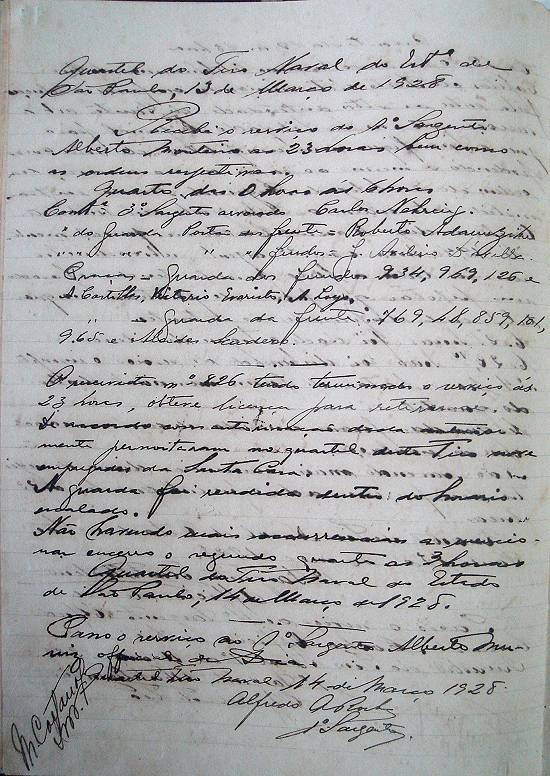 Quartel do Tiro Naval do Estº de
São Paulo, 13 de Março de 1928
Recebi o serviço do 1º Sargento
Alberto Monteiro as 23 horas bem como
as ordens respectivas.
Quarto das 0 hora ás 6 horas
Comte 3º Sargento arvorado Carlos
" da Guarda Porta da frente = Roberto
" " " " " fundos = J.
Praças = Guarda dos fundos 934, 969, 126 e
A. Castilho, Victorio
" = Guarda da frente 769, 48, 859, 101,
965 e Alcides
O reservista nº 826 tendo terminado o serviço ás
23 horas, obteve licença para retirar-se.
De accordo com
mente pernoitaram no quartel deste Tiro nove
empregados da Santa Casa
A guarda foi rendida dentro do horario
escalado.
Não havendo mais occorrencias a mencio-
nar encerro o segundo quarto as 3 horas
Quartel do Tiro Naval do Estado
de São Paulo, 14 de Março de 1928.
Passo o serviço ao 1º Sargento Alberto
official de Dia.
Quartel Tiro Naval 14 de Março 1928.
Alfredo
1º Sargento.